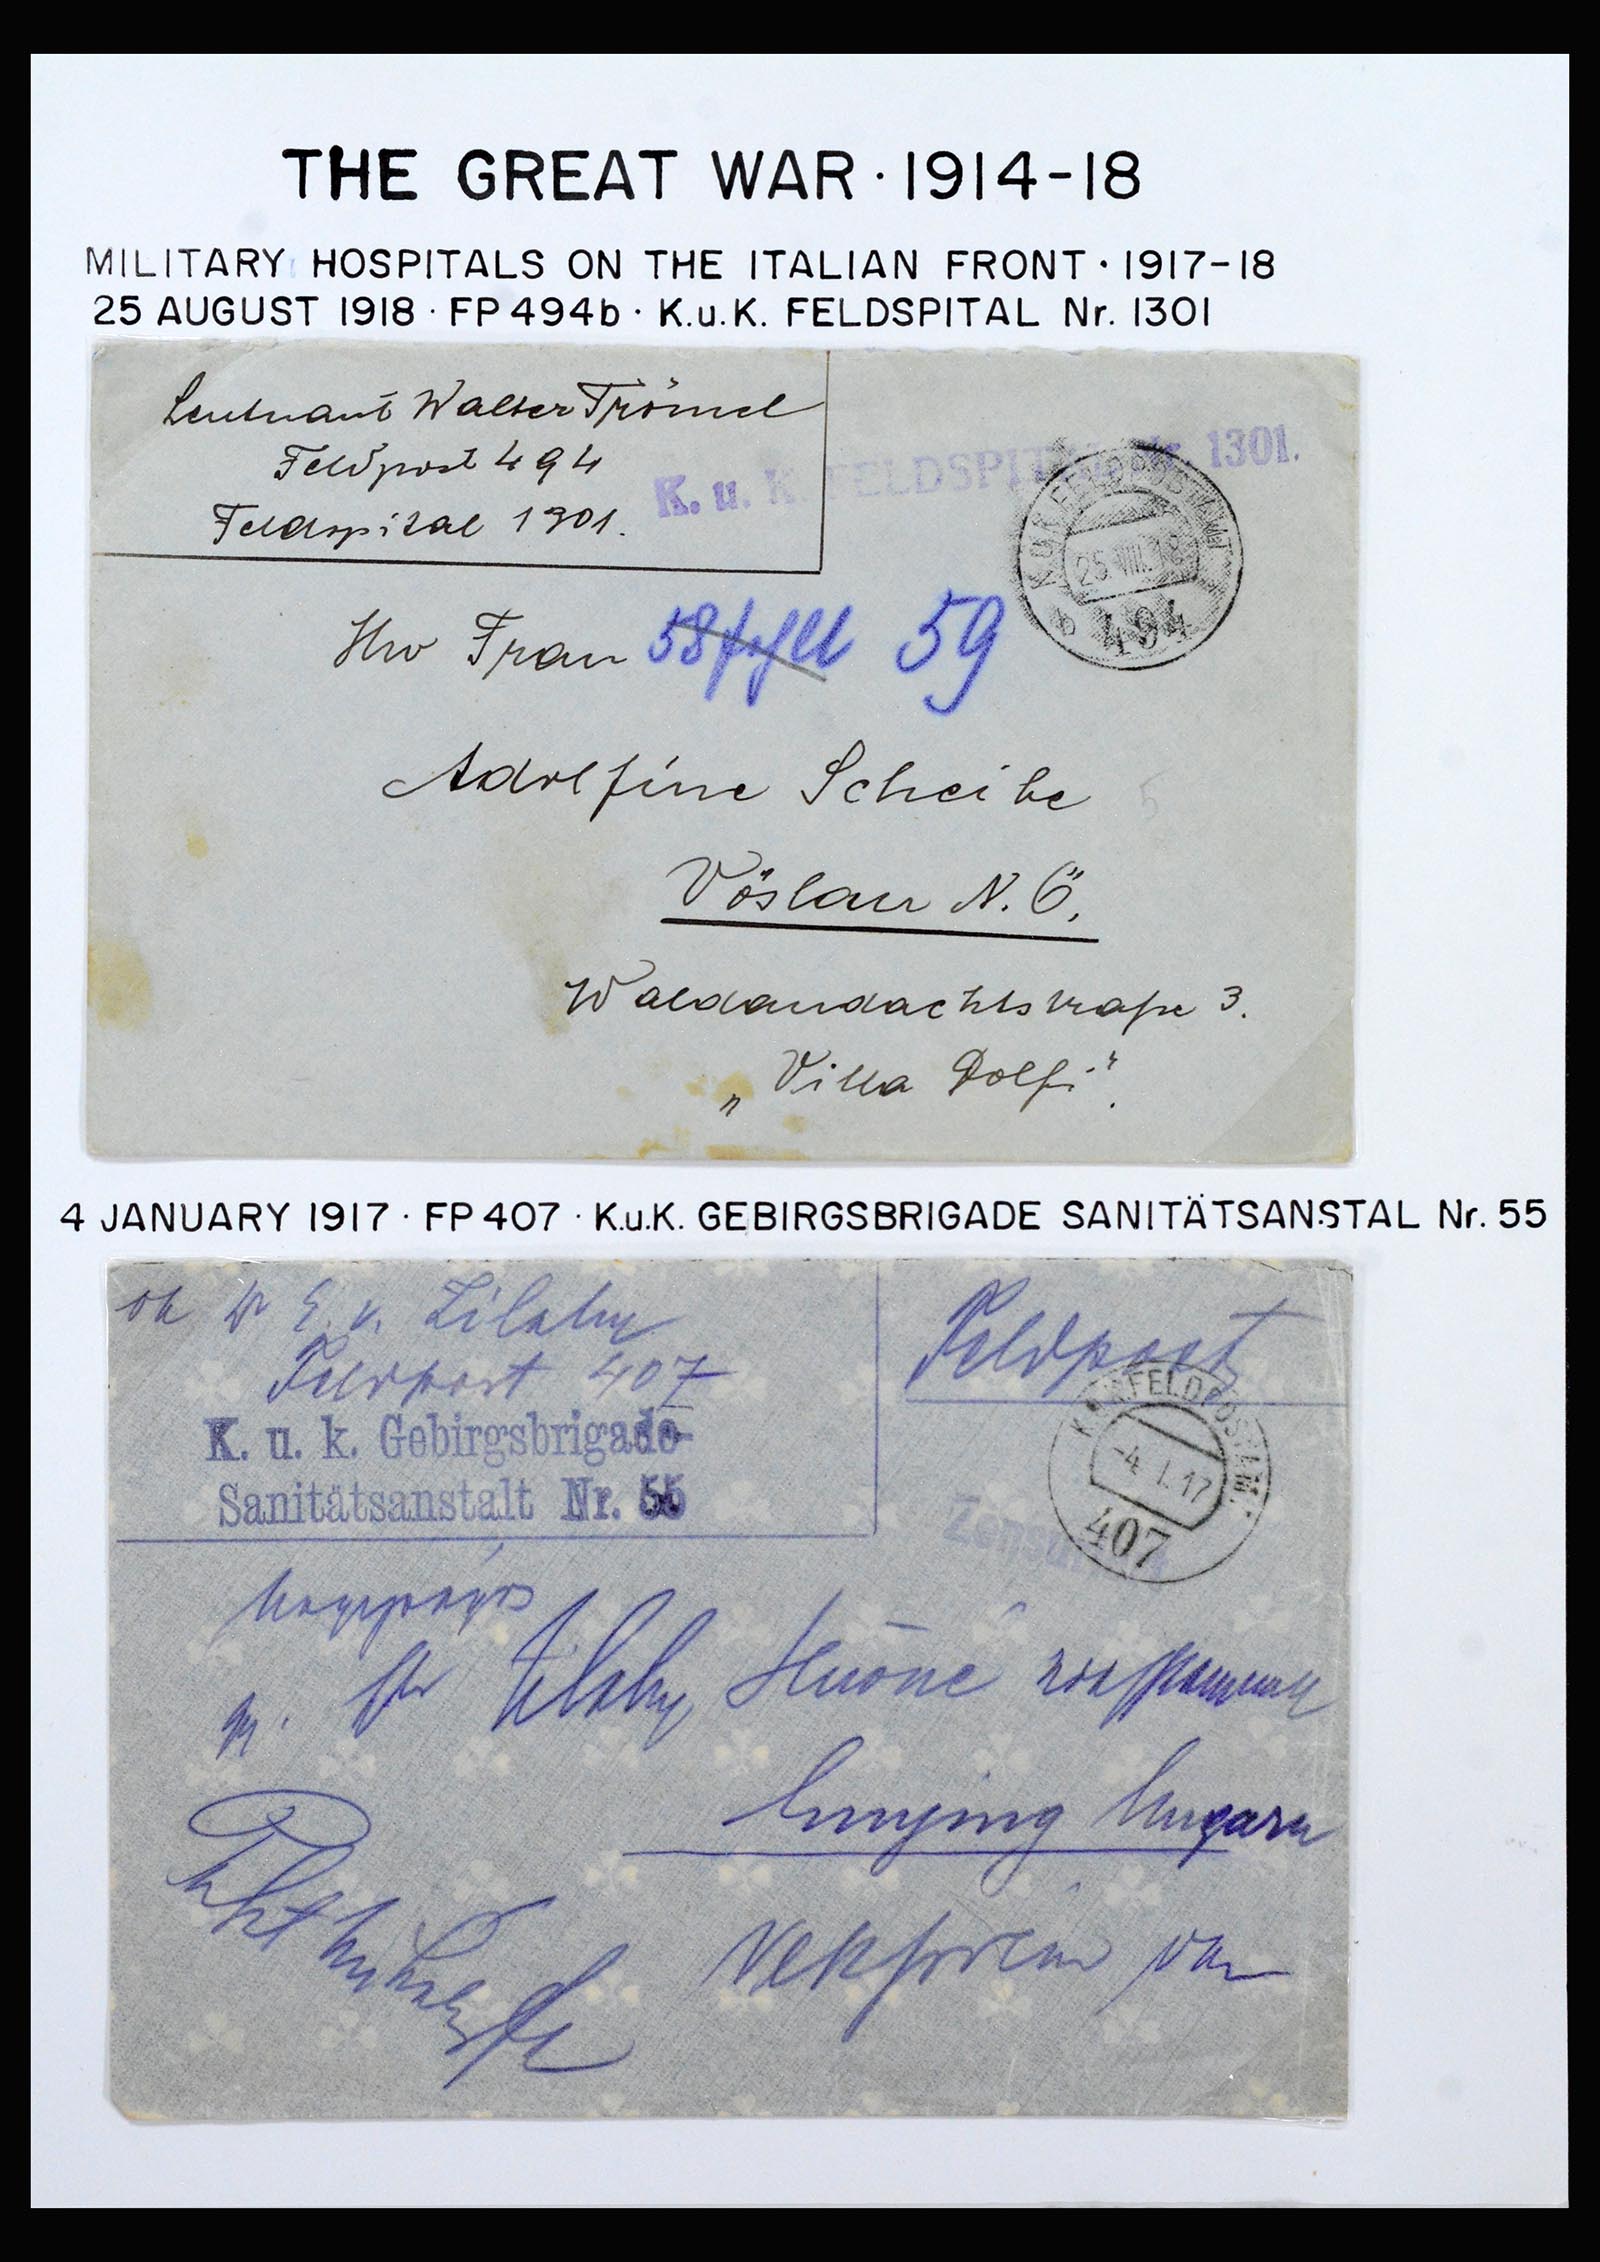 THE GREAT WAR · 1914-18
MILITARY HOSPITALS ON THE ITALIAN FRONT · 1917-18
25 AUGUST 1918 · FP 494b · K.u.K. FELDSPITAL Nr. 1301
Leutnant Walter Trömel
Feldpost 494
Feldspital 1301.
K. u. K. FELDSPITAL Nr. 1301.
K.u.K. FELDPOSTAMT
25. VIII. 18
b 494
Frau
58 59
Adolfine Scheibe
Vöslau N. Ö.
Waldandachtstraße 3.
„Villa Dolfi".
4 JANUARY 1917 · FP 407 · K.u.K. GEBIRGSBRIGADE SANITÄTSANSTAL Nr. 55
Feldpost 407
K. u. k. Gebirgsbrigade-
Sanitätsanstalt Nr. 55
Feldpost
K.u.K. FELDPOSTAMT
-4. I. 17
407
Zensur
Ungarn